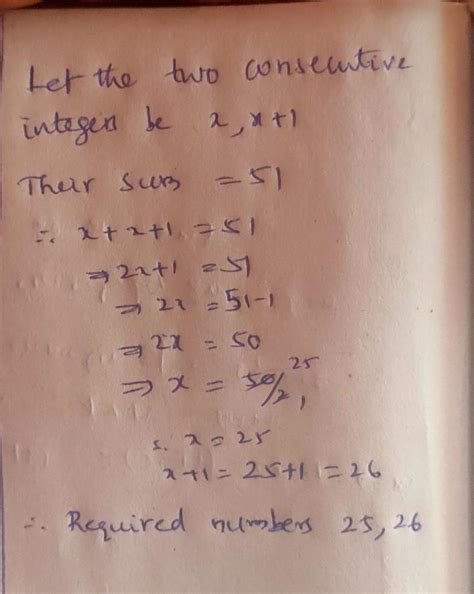 Let the two consecutive
integers be x, x+1
Their sum = 51
∴ x + x+1 = 51
⇒ 2x+1 = 51
⇒ 2x = 51-1
⇒ 2x = 50
⇒ x = 50/2 25 1
∴ x = 25
x+1 = 25+1 = 26
∴ Required numbers 25, 26